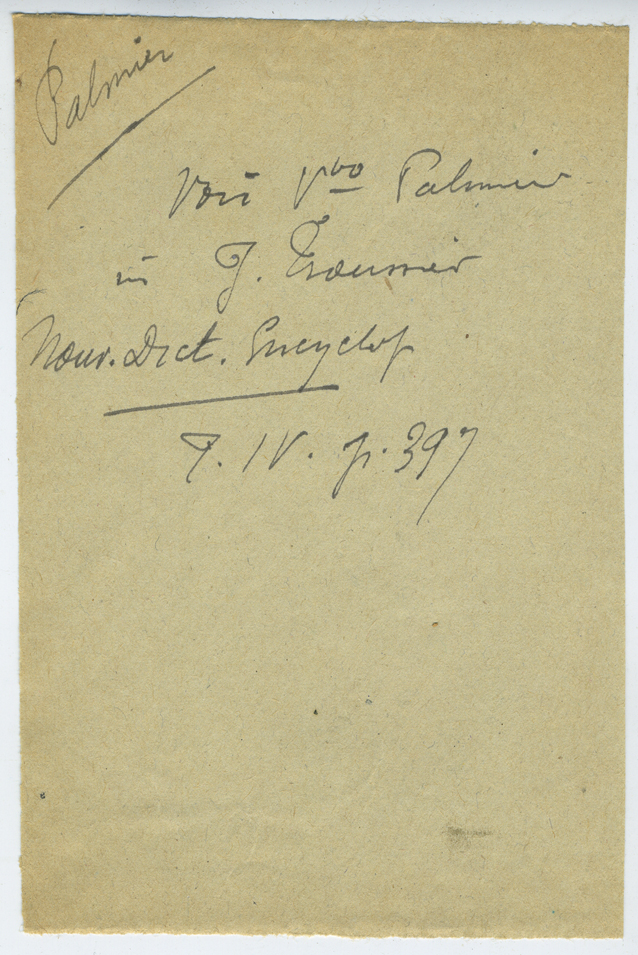 Palmier
Voir Vbo Palmier
in J. Trousset
Nouv. Dict. Encyclop
T. IV. p. 397